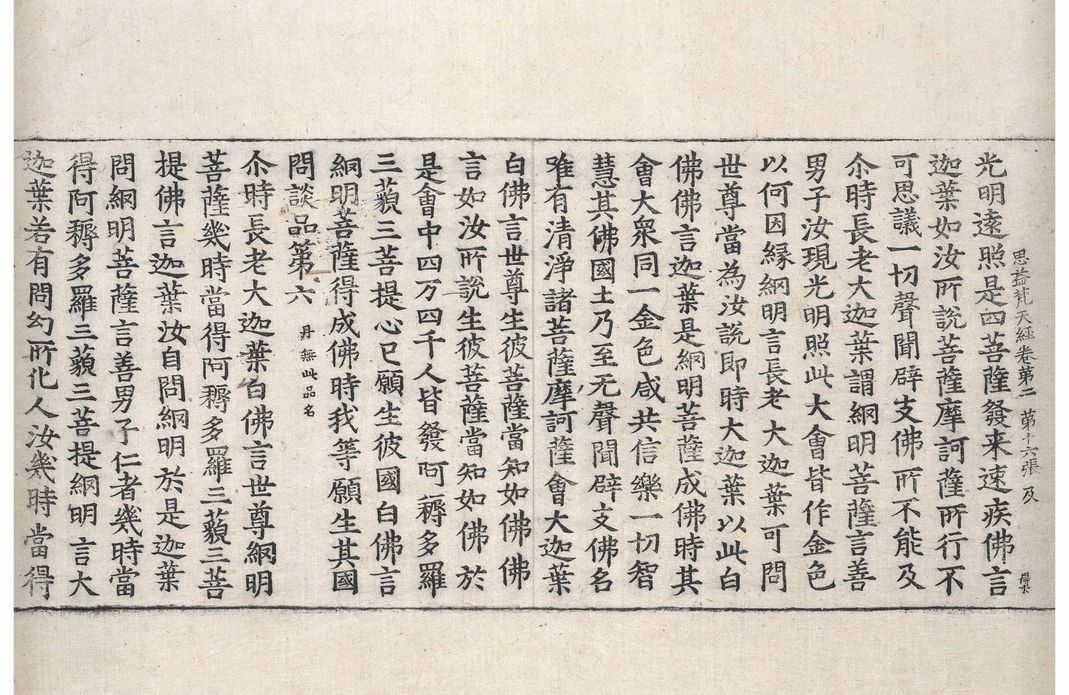 光明遠照是四菩薩發来速疾佛言
思益梵天経卷第二 第十六張 及
迦葉如汝所說菩薩摩訶薩所行不
可思議一切聲聞辟支佛所不能及
尒時長老大迦葉謂網明菩薩言善
男子汝現光明照此大會皆作金色
以何因緣網明言長老大迦葉可問
世尊當為汝說即時大迦葉以此白
佛佛言迦葉是網明菩薩成佛時其
會大衆同一金色咸共信樂一切智
慧其佛國土乃至无聲聞辟支佛名
唯有清淨諸菩薩摩訶薩會大迦葉
白佛言世尊生彼菩薩當知如佛佛
言如汝所說生彼菩薩當知如佛於
是會中四万四千人皆發阿耨多羅
三藐三菩提心已願生彼國白佛言
網明菩薩得成佛時我等願生其國
問談品第六 丹無此品名
尒時長老大迦葉白佛言世尊網明
菩薩幾時當得阿耨多羅三藐三菩
提佛言迦葉汝自問網明於是迦葉
問網明菩薩言善男子仁者幾時當
得阿耨多羅三藐三菩提網明言大
迦葉若有問幻所化人汝幾時當得